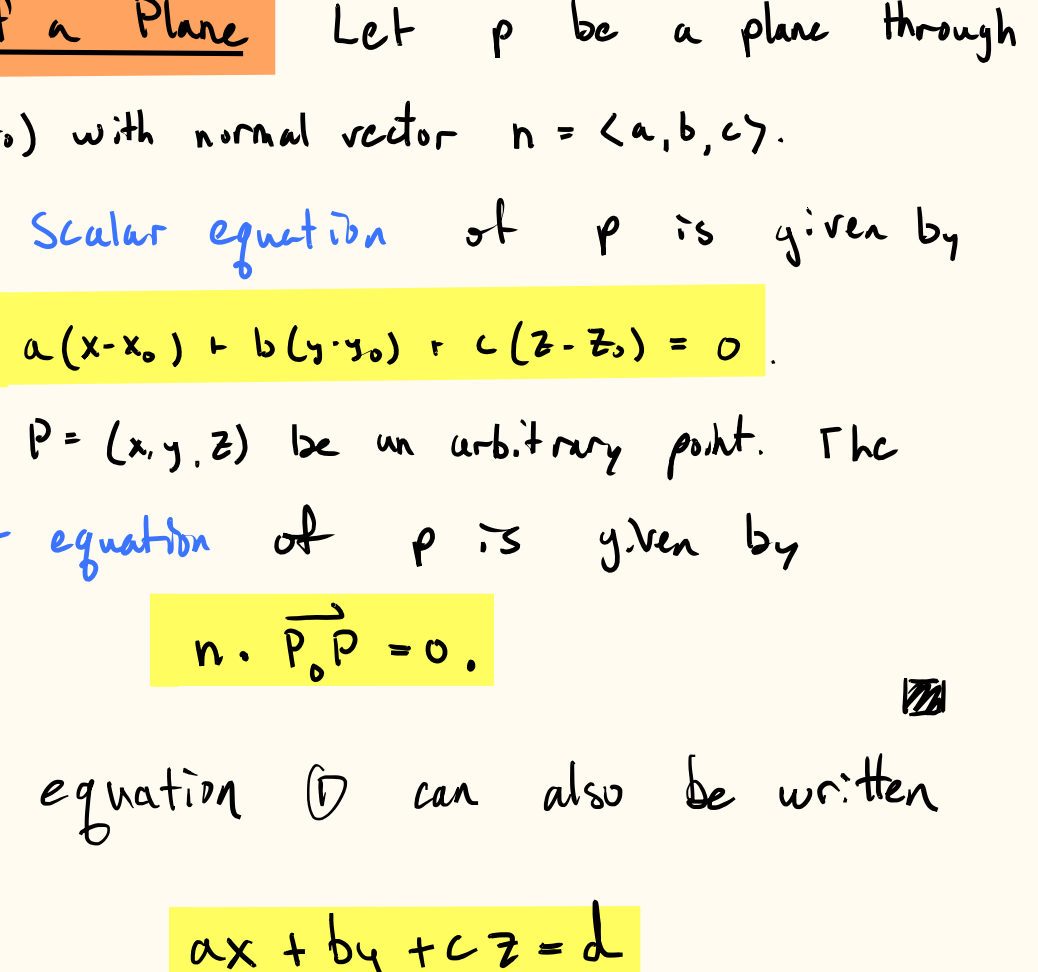 a Plane Let p be a plane through
₀) with normal vector n = ⟨a, b, c⟩.
Scalar equation of p is given by
a(x-x₀) + b(y-y₀) + c(z-z₀) = 0.
P = (x, y, z) be an arbitrary point. The
equation of p is given by
n · \overrightarrow{P₀P} = 0.
equation ① can also be written
ax + by + cz = d